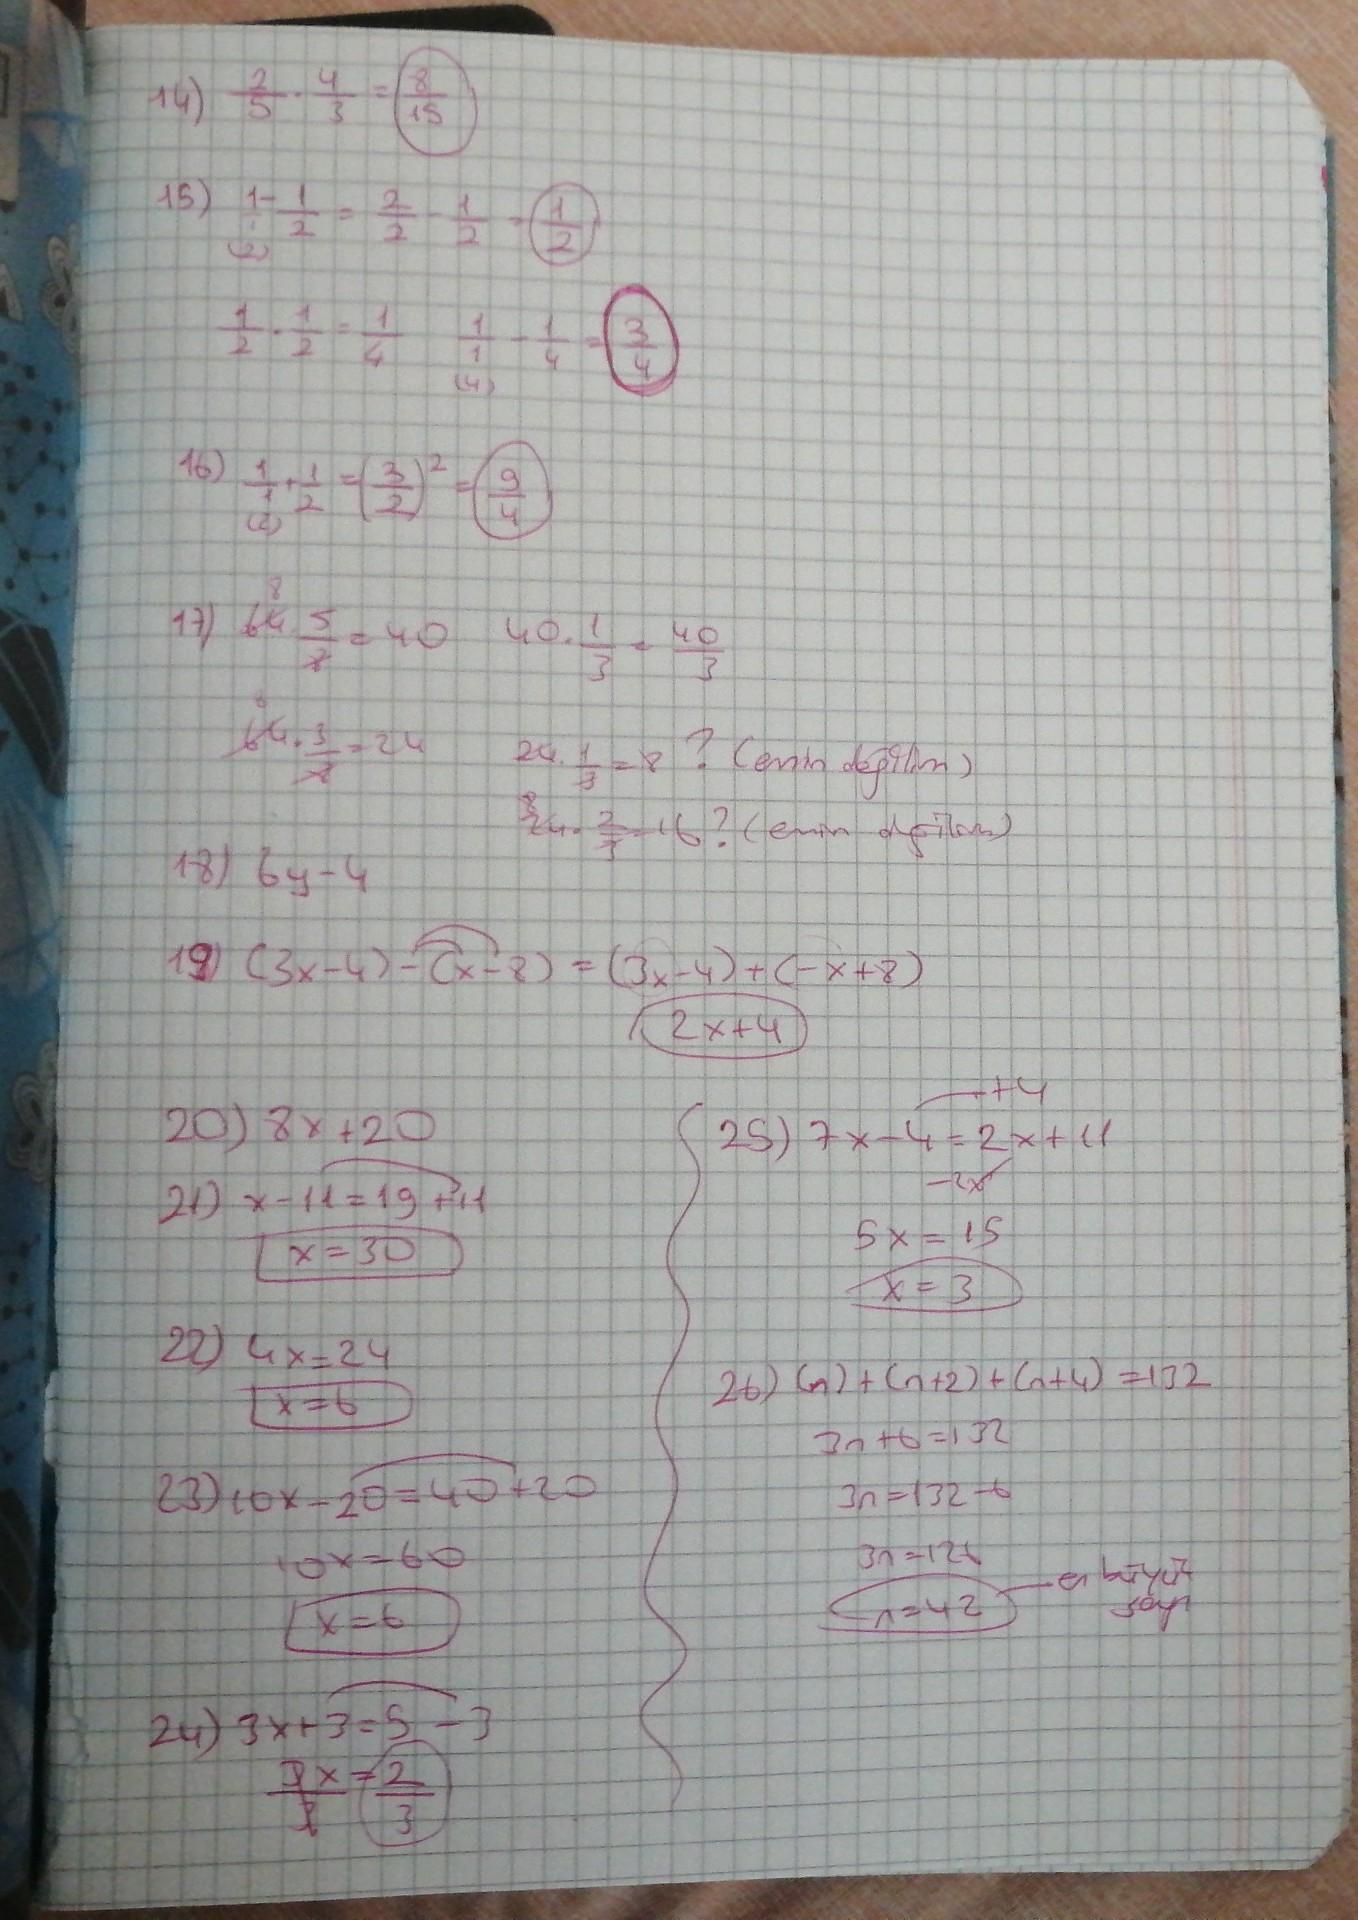 14) 2/5 · 4/3 = 8/15
15) 1/1 - 1/2 = 2/2 - 1/2 = 1/2
(2)
1/2 · 1/2 = 1/4   1/1 - 1/4 = 3/4
(4)
16) 1/1 + 1/2 = (3/2)² = 9/4
(2)
17) 64 · 5/8 = 40   40 · 1/3 = 40/3
8
64 · 3/8 = 24   24 · 1/3 = 8 ? (emin değilim)
8
24 · 2/3 = 16 ? (emin değilim)
8
18) 6y - 4
19) (3x-4) - (x-8) = (3x-4) + (-x+8)
2x+4
20) 8x+20
21) x-11=19+11
x=30
22) 4x=24
x=6
23) 10x-20=40+20
10x=60
x=6
24) 3x+3=5-3
3x/3 = 2/3
+4
25) 7x-4=2x+11
-2x
5x=15
x=3
26) (n)+(n+2)+(n+4)=132
3n+6=132
3n=132-6
3n=126
n=42 en büyük
sayı